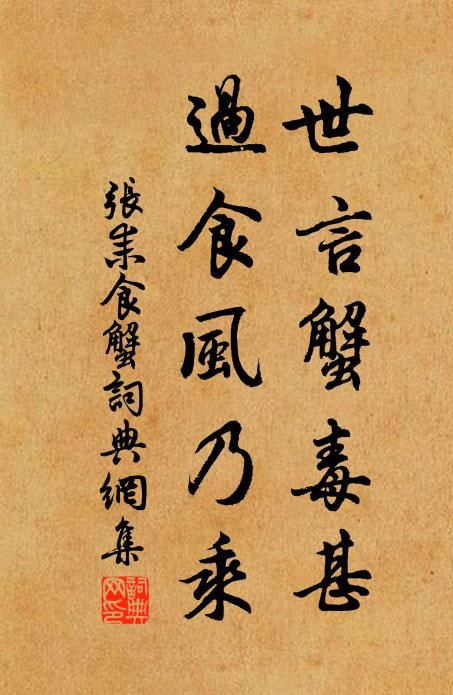 世言蟹毒甚
過食風乃乘
張耒食蟹詞典網集
詞典網印